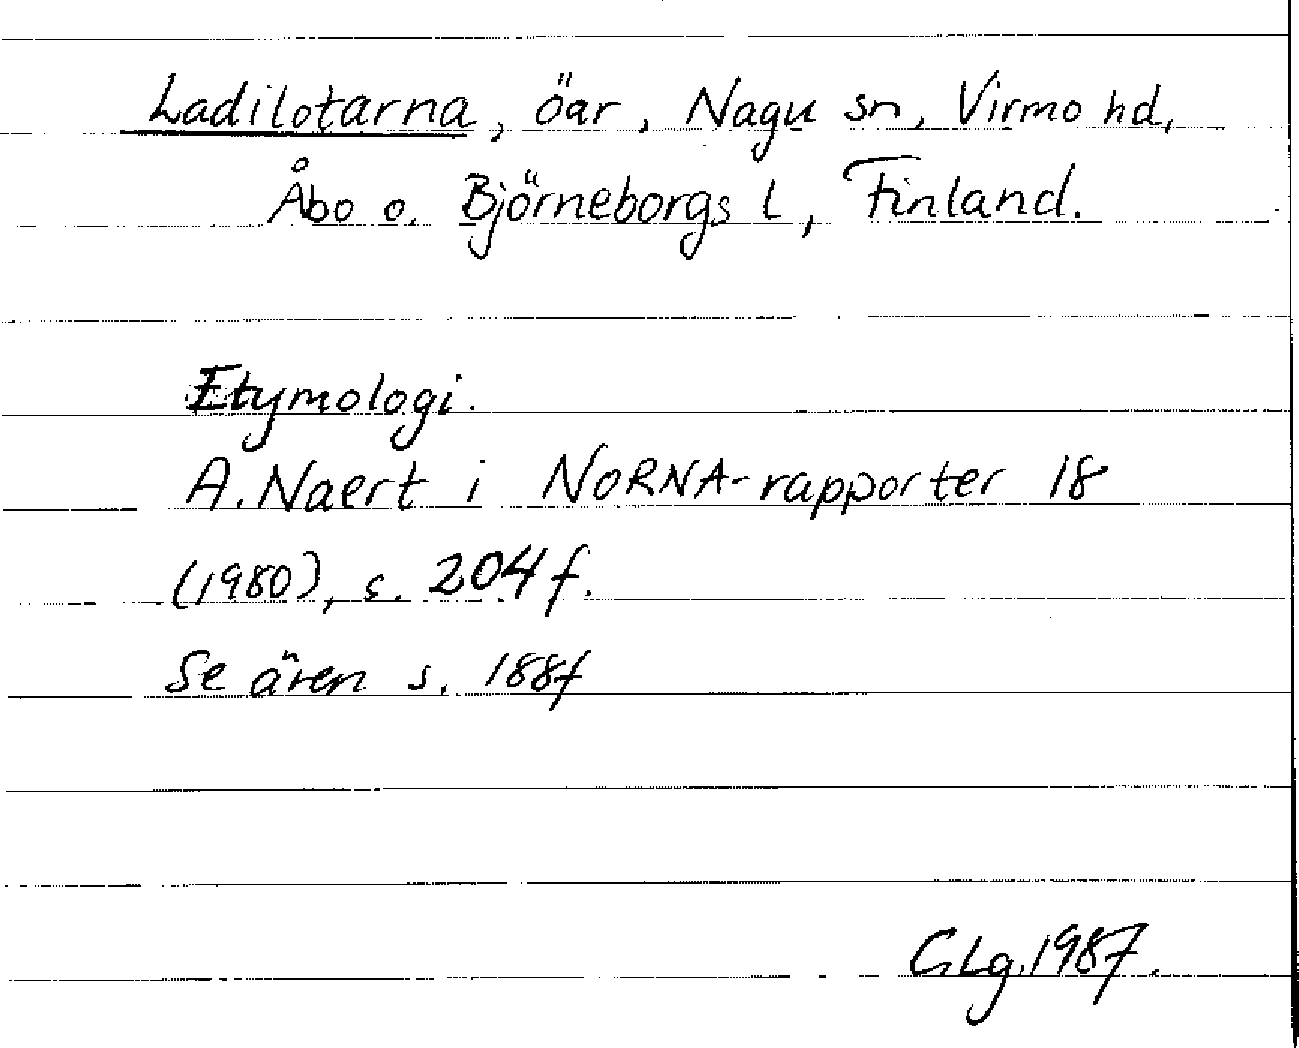 Ladilotarna, öar, Nagu sn, Virmo hd,
Åbo o. Björneborgs l, Finland.
Etymologi.
A. Naert i NORNA-rapporter 18
(1980), s. 204 f.
Se även s. 188f
GLg. 1987.